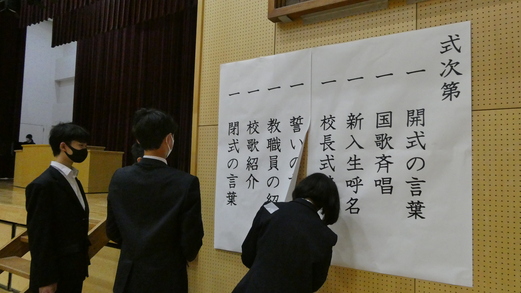 式次第
一 開式の言葉
一 国歌斉唱
一 新入生呼名
一 校長式
一 誓いの
一 教職員の紹
一 校歌紹介
一 閉式の言葉